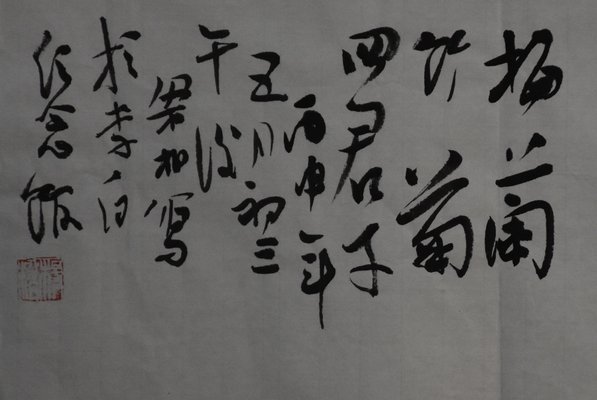 梅兰
竹菊
四君子
丙申年
五月初三
午後
写
於李白
纪念馆